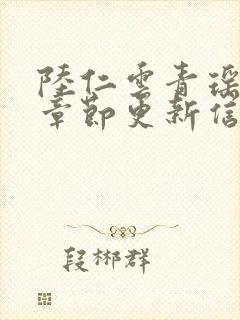 陸仁雲青瑶
章節更新信
段郴群